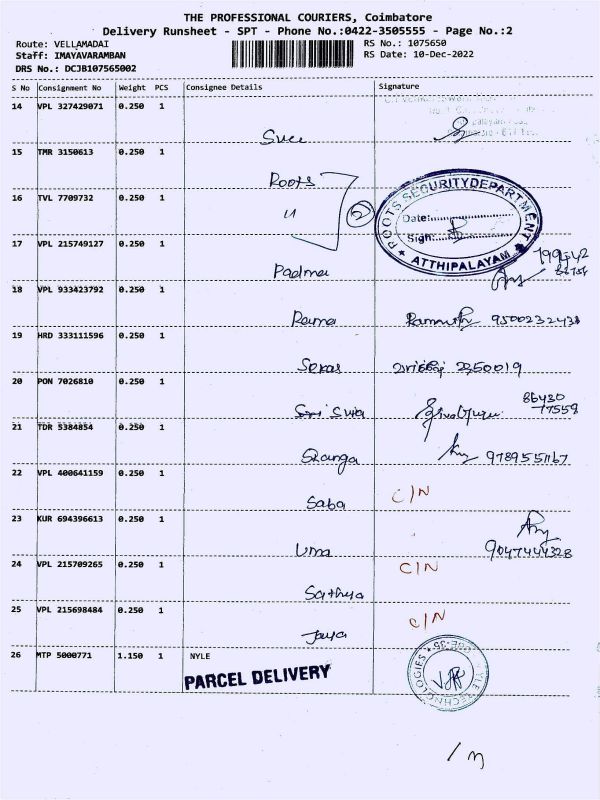 THE PROFESSIONAL COURIERS, Coimbatore
Delivery Runsheet - SPT - Phone No.:0422-3505555 - Page No.:2
Route: VELLAMADAI
Staff: IMAYAVARAMBAN
DRS No.: DCJB107565002
RS No.: 1075650
RS Date: 10-Dec-2022
S No Consignment No Weight PCS Consignee Details Signature
14 VPL 327429071 0.250 1
15 TMR 3150613 0.250 1 Roots
16 TVL 7709732 0.250 1 u 2
ROOTS SECURITY DEPARTMENT
Date:
Sign:
* ATTHIPALAYAM *
17 VPL 215749127 0.250 1 Padma
18 VPL 933423792 0.250 1 Rama 9500232438
19 HRD 333111596 0.250 1 2350019
20 PON 7026810 0.250 1 Sri Siva 86430 77559
21 TDR 5384854 0.250 1 Ranga 9789551167
22 VPL 400641159 0.250 1 Saba C/N
23 KUR 694396613 0.250 1 Uma 9047444328
24 VPL 215709265 0.250 1 Sathya C/N
25 VPL 215698484 0.250 1 Jaya C/N
26 MTP 5000771 1.150 1 NYLE
PARCEL DELIVERY